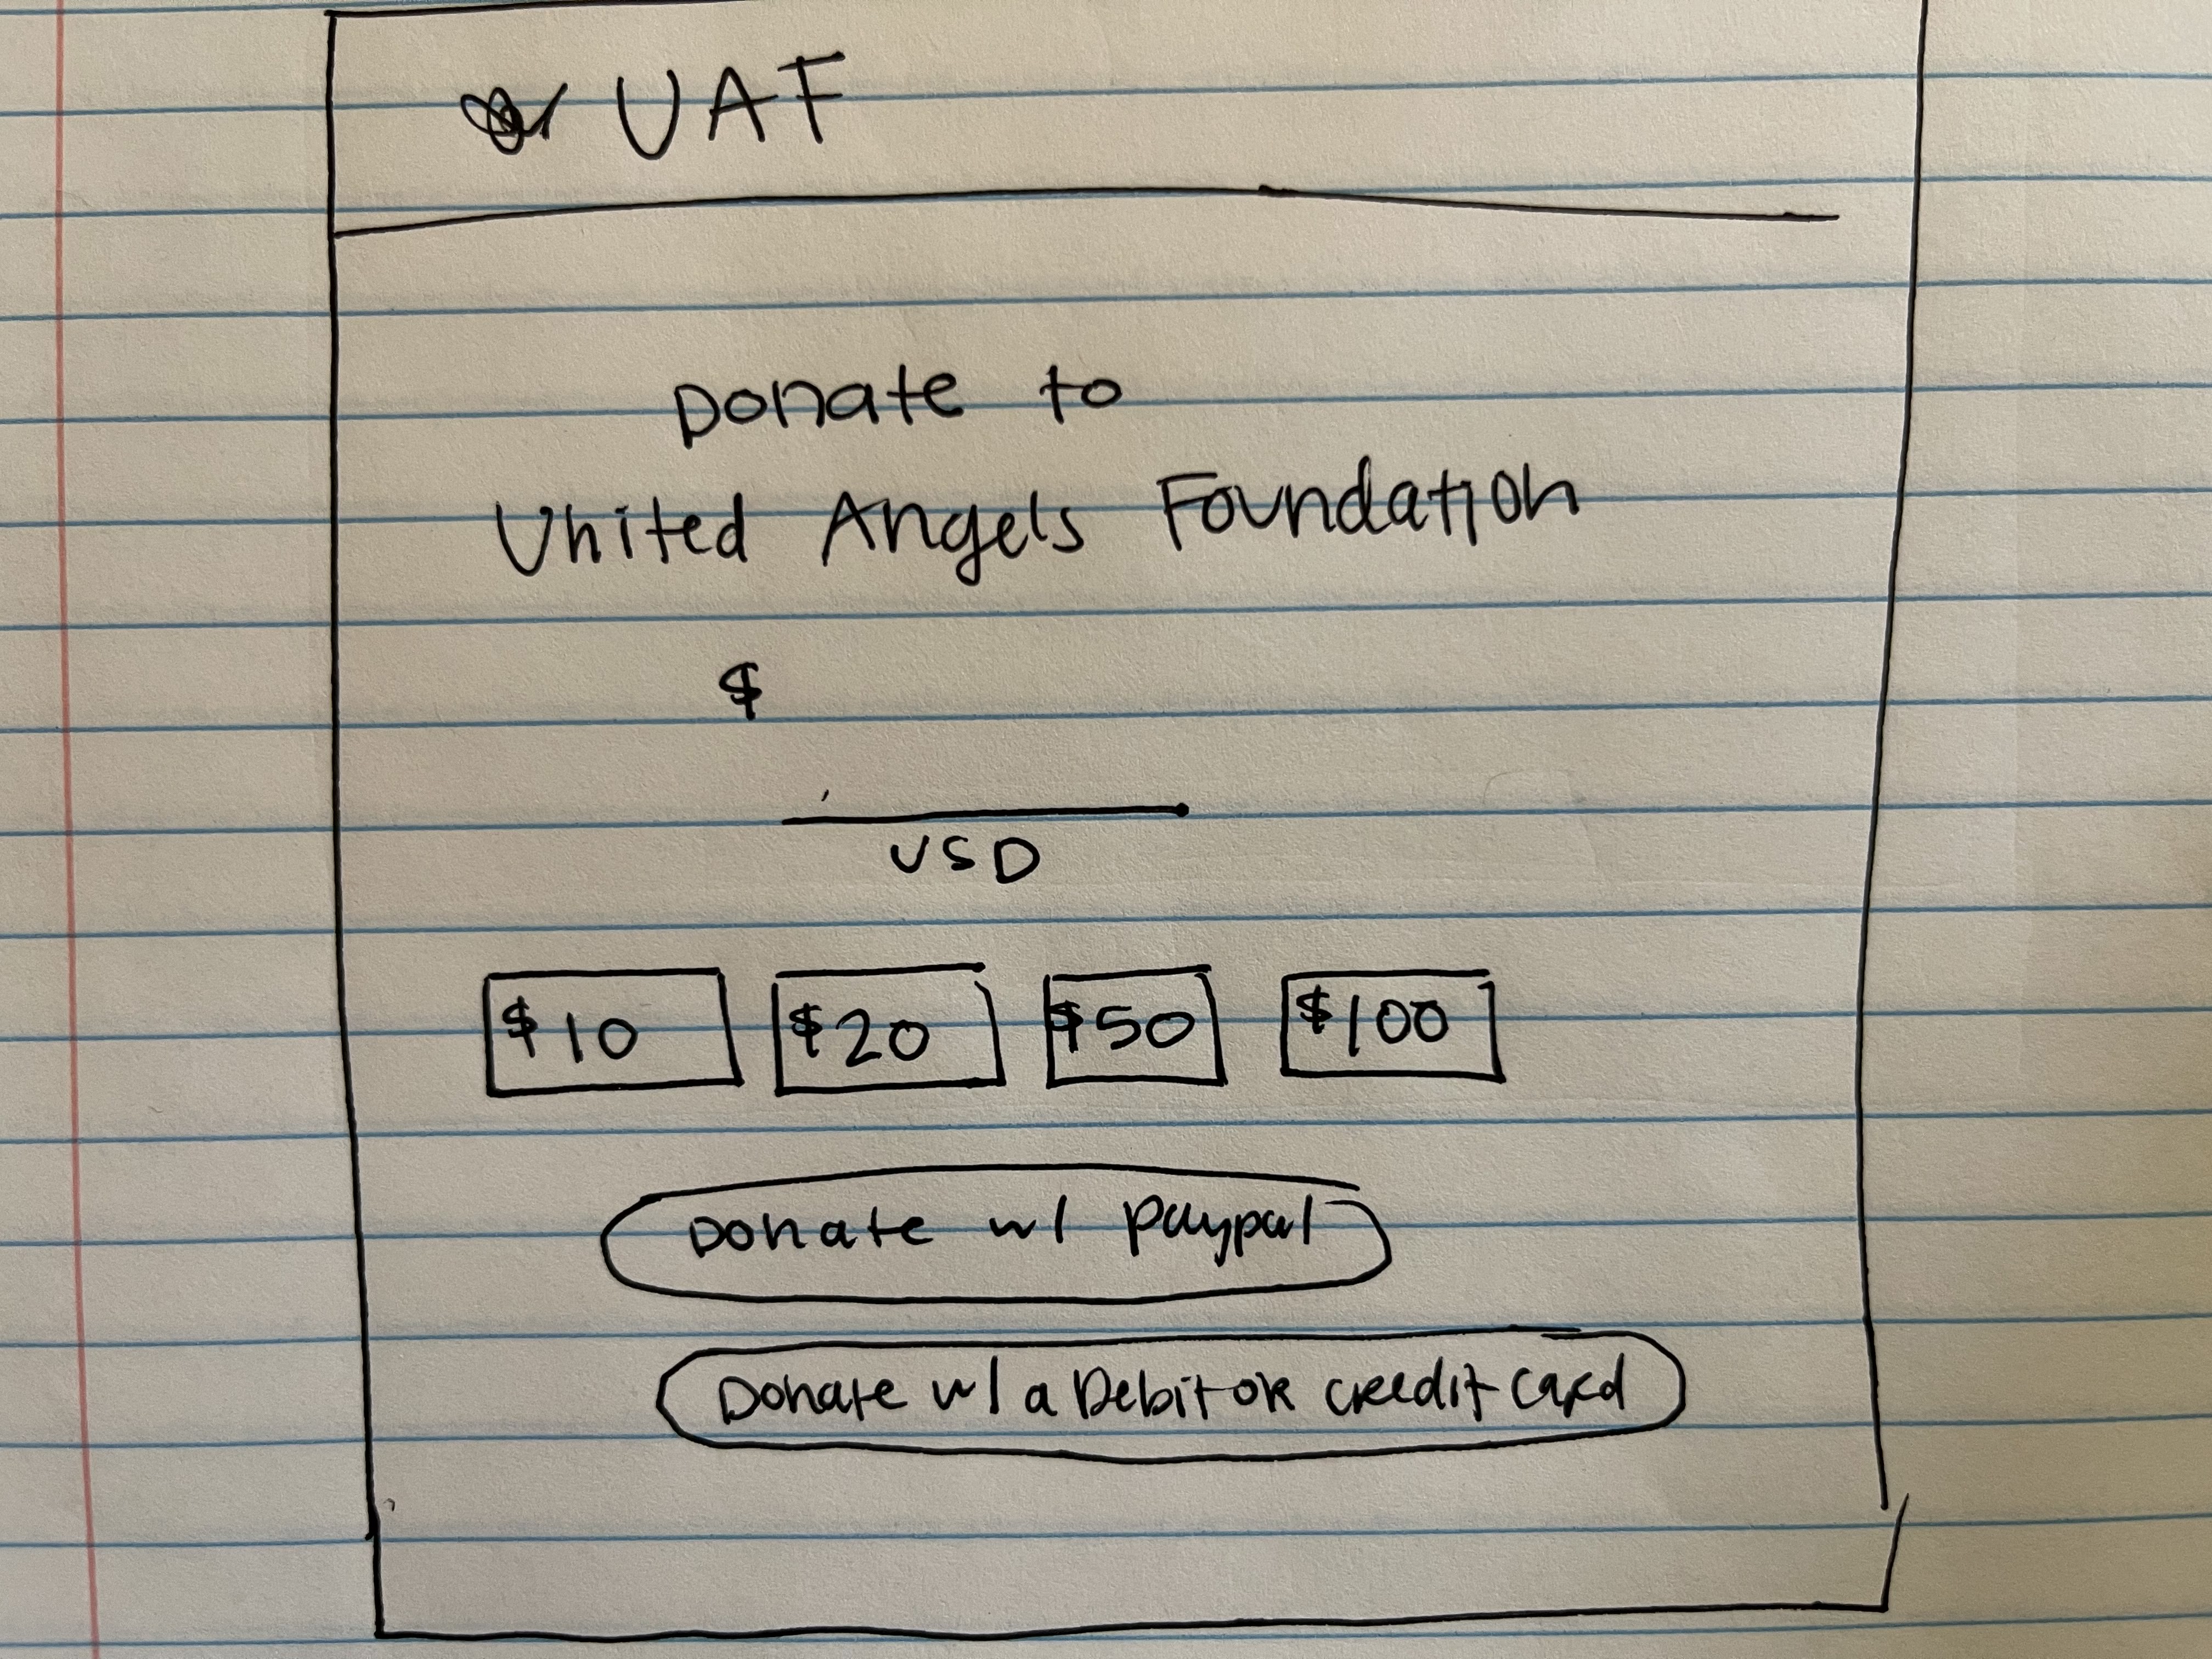 UAF
Donate to
United Angels Foundation
$
USD
$10 $20 $50 $100
Donate w/ paypal
Donate w/ a Debit or credit card